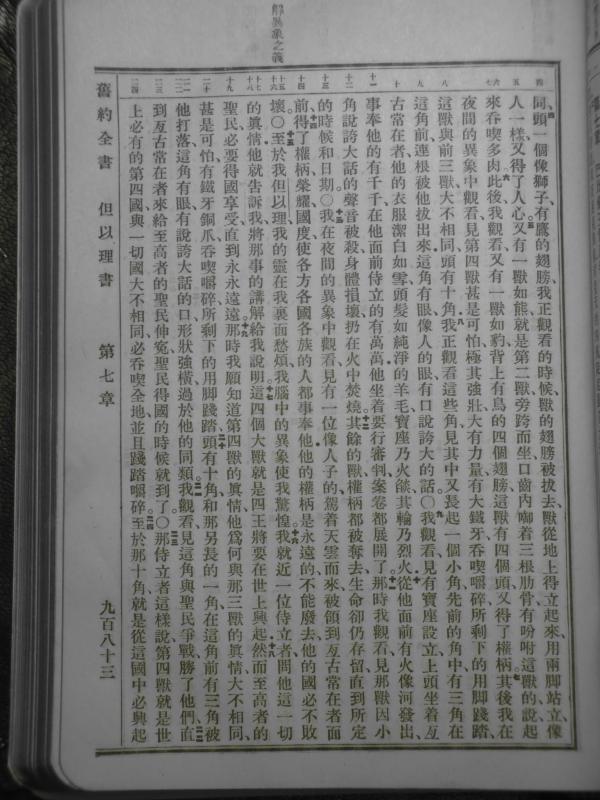 解異象之義
同、頭一個像獅子、有鷹的翅膀、我正觀看的時候、獸的翅膀被拔去、獸從地上得立起來、用兩脚站立像
人一樣、又得了人心。又有一獸如熊、就是第二獸、旁跨而坐、口齒內啣着三根肋骨、有吩咐這獸的說、起
來吞喫多肉。此後我觀看、又有一獸如豹、背上有鳥的四個翅膀、這獸有四個頭、又得了權柄。其後我在
夜間的異象中觀看、見第四獸甚是可怕、極其強壯、大有力量、有大鐵牙、吞喫嚼碎、所剩下的用脚踐踏、
這獸與前三獸大不相同、頭有十角。我正觀看這些角、見其中又長起一個小角、先前的角中有三角在
這角前、連根被他拔出來、這角有眼像人的眼、有口說誇大的話。○我觀看、見有寶座設立、上頭坐着亙
古常在者、他的衣服潔白如雪、頭髮如純淨的羊毛、寶座乃火燄、其輪乃烈火。從他面前有火像河發出、
事奉他的有千千、在他面前侍立的有萬萬、他坐着要行審判、案卷都展開了。那時我觀看、見那獸因小
角說誇大話的聲音被殺、身體損壞、扔在火中焚燒。其餘的獸、權柄都被奪去、生命卻仍存留、直到所定
的時候和日期。○我在夜間的異象中觀看、見有一位像人子的、駕着天雲而來、被領到亙古常在者面
前、得了權柄、榮耀、國度、使各方各國各族的人都事奉他、他的權柄是永遠的、不能廢去、他的國必不敗
壞。○至於我但以理、我的靈在我裏面愁煩、我腦中的異象使我驚惶。我就近一位侍立者、問他這一切
的真情、他就告訴我、將那事的講解給我說明。這四個大獸就是四王將要在世上興起。然而至高者的
聖民必要得國享受、直到永永遠遠。那時我願知道第四獸的真情、他爲何與那三獸的真情大不相同、
甚是可怕、有鐵牙銅爪、吞喫嚼碎、所剩下的用脚踐踏、頭有十角、和那另長的一角、在這角前有三角被
他打落、這角有眼、有說誇大話的口、形狀強橫過於他的同類。我觀看、見這角與聖民爭戰、勝了他們。直
到亙古常在者來給至高者的聖民伸冤、聖民得國的時候就到了。○那侍立者這樣說、第四獸就是世
上必有的第四國、與一切國大不相同、必吞喫全地、並且踐踏嚼碎。至於那十角、就是從這國中必興起
舊約全書 但以理書 第七章 九百八十三